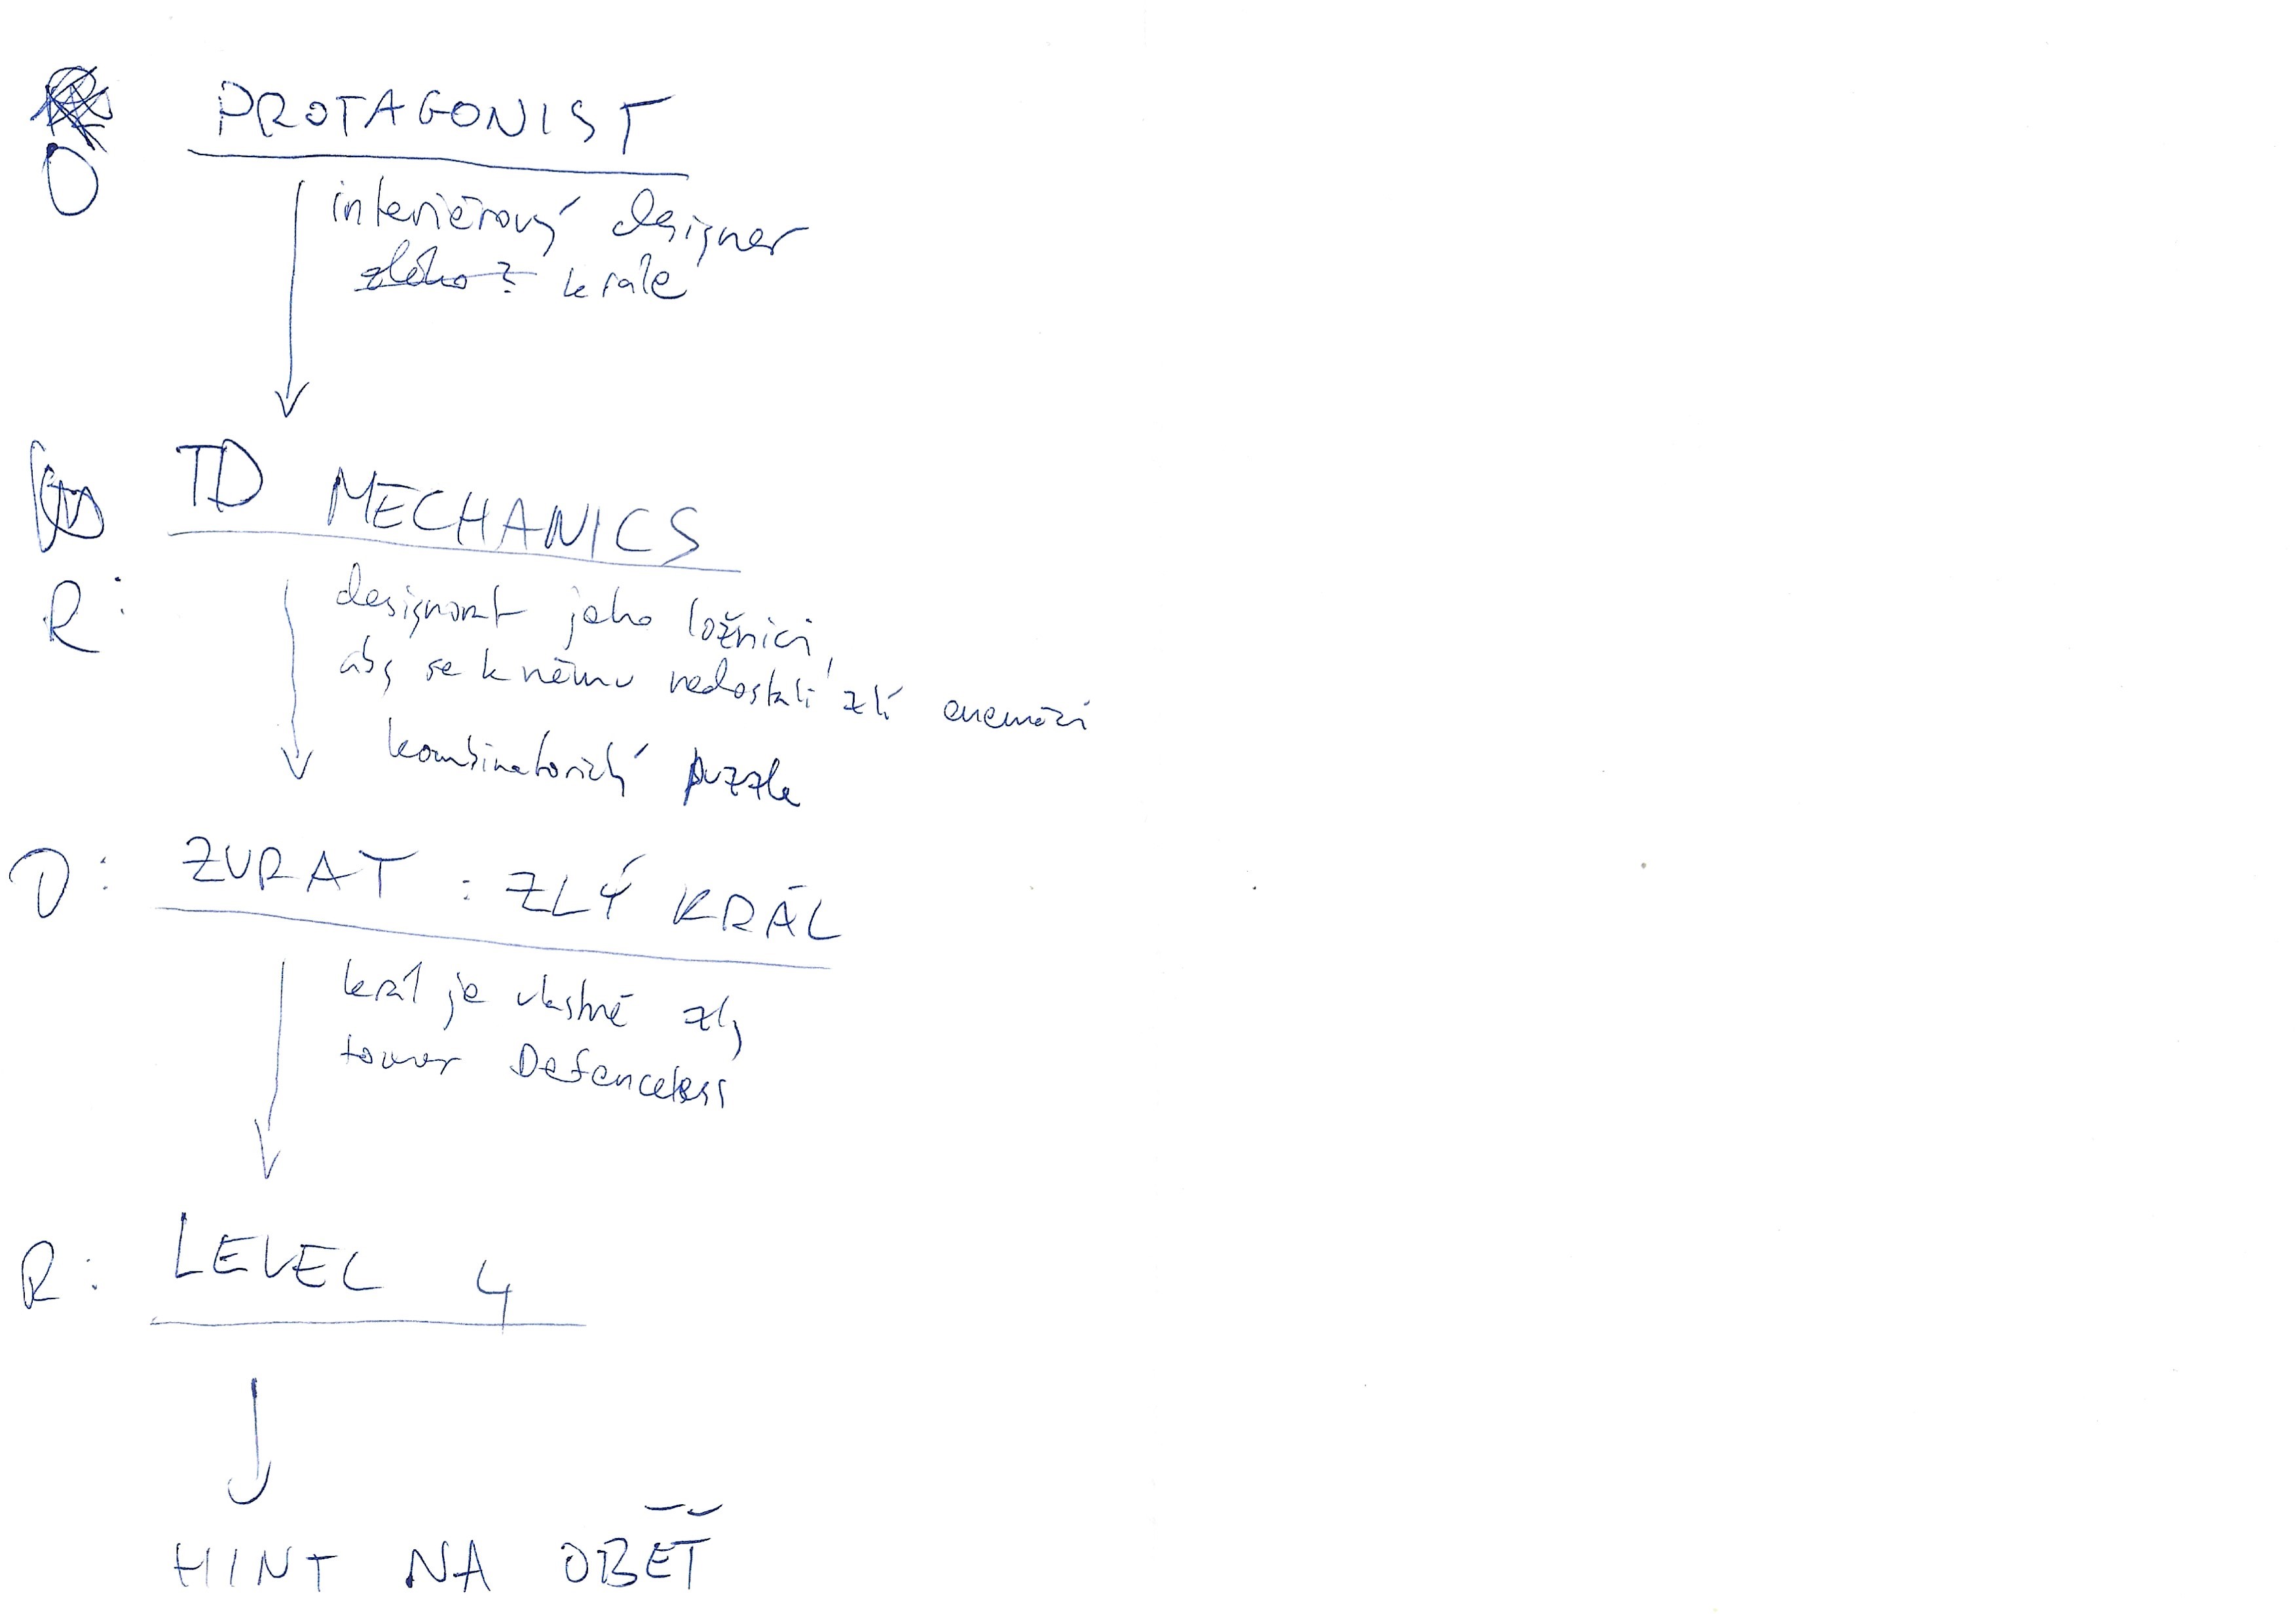 O PROTAGONIST
interiérový designer
zlého? krále
TD MECHANICS
R:
designovat jeho ložnici,
aby se k němu nedostali zlí enemáci
kombinatorický puzzle
O: ZVRAT: ZLÝ KRÁL
král je vlastně zlý
tower Defenceless
R: LEVEL 4
HINT NA OBĚŤ